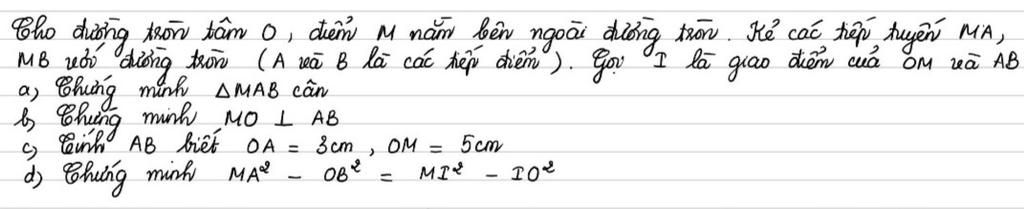 Cho đường tròn tâm O, điểm M nằm bên ngoài đường tròn. Kẻ các tiếp tuyến MA,
MB với đường tròn (A và B là các tiếp điểm). Gọi I là giao điểm của OM và AB
a) Chứng minh △MAB cân
b) Chứng minh MO ⊥ AB
c) Tính AB biết OA = 3cm, OM = 5cm
d) Chứng minh MA² - OB² = MI² - IO²